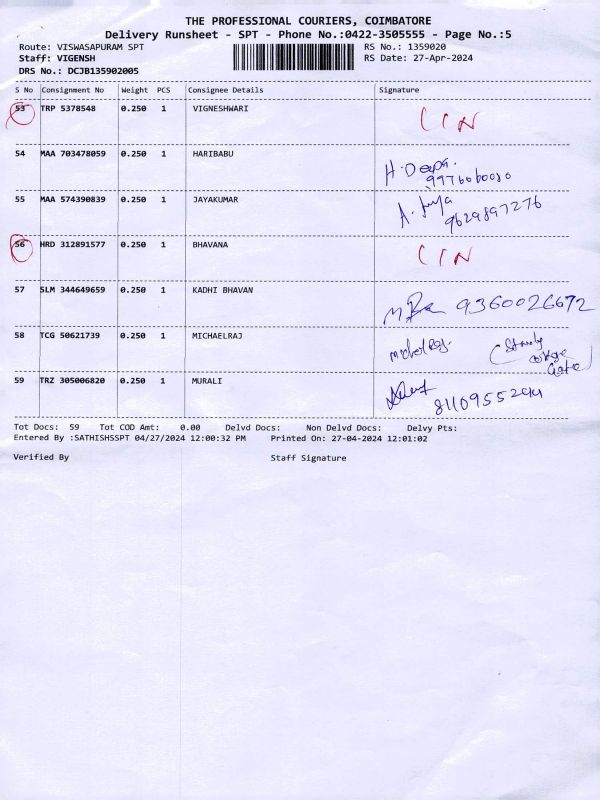 THE PROFESSIONAL COURIERS, COIMBATORE
Delivery Runsheet - SPT - Phone No.:0422-3505555 - Page No.:5
Route: VISWASAPURAM SPT RS No.: 1359020
Staff: VIGENSH RS Date: 27-Apr-2024
DRS No.: DCJB135902005
S No Consignment No Weight PCS Consignee Details Signature
53 TRP 5378548 0.250 1 VIGNESHWARI
54 MAA 703478059 0.250 1 HARIBABU H. Deepa.
9976060080
55 MAA 574390839 0.250 1 JAYAKUMAR A. Jaya
9629897276
56 HRD 312891577 0.250 1 BHAVANA
57 SLM 344649659 0.250 1 KADHI BHAVAN 9360026672
58 TCG 50621739 0.250 1 MICHAELRAJ
59 TRZ 305006820 0.250 1 MURALI
Tot Docs: 59 Tot COD Amt: 0.00 Delvd Docs: Non Delvd Docs: Delvy Pts:
Entered By :SATHISHSSPT 04/27/2024 12:00:32 PM Printed On: 27-04-2024 12:01:02
Verified By Staff Signature